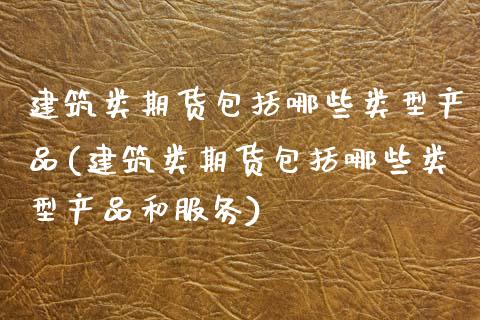 建筑类期货包括哪些类型产
品(建筑类期货包括哪些类
型产品和服务)